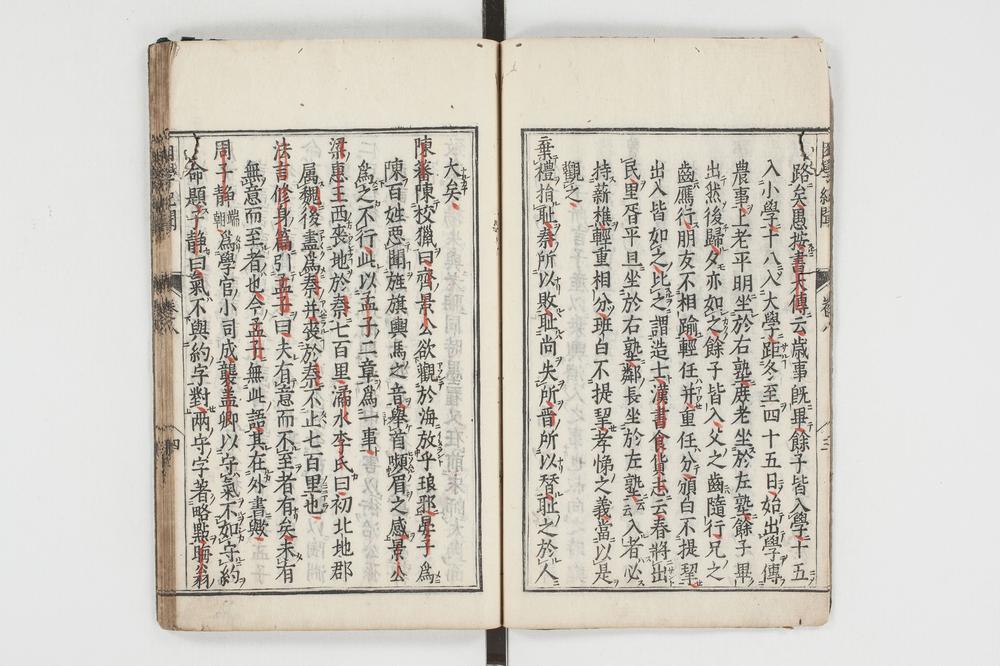 路矣愚按書大傳云歲事既畢餘子皆入學十五
入小學十八入大學距冬至四十五日始出學傳
農事上老平明坐於右塾庶老坐於左塾餘子畢
出然後歸夕亦如之餘子皆入父之齒隨行兄之
齒鴈行朋友不相踰輕任并重任分頒白不提挈
出入皆如之此之謂造士漢書食貨志云春將出
民里胥平旦坐於右塾鄰長坐於左塾云云入者必
持薪樵輕重相分班白不提挈孝悌之義當以是
觀之
棄禮捐恥秦所以敗恥尚失所晉所以替恥之於人
大矣
陳蕃陳校獵曰齊景公欲觀於海放乎琅邪晏子爲
陳百姓惡聞旌旗輿馬之音舉首嚬眉之感景公
爲之不行此以孟子二章爲一事
梁惠王西喪地於秦七百里涌水李氏曰初北地郡
屬魏後盡爲秦并喪於秦不止七百里也
法言修身篇引孟子曰夫有意而不至者有矣未有
無意而至者也今孟子無此語其在外書歟
周子静端朝爲學官小司成襲蓋卿以守氣不如守約
命題子静曰氣不與約字對兩守字著略點晦翁
困學紀聞 卷八 三
困學紀聞 卷八 四